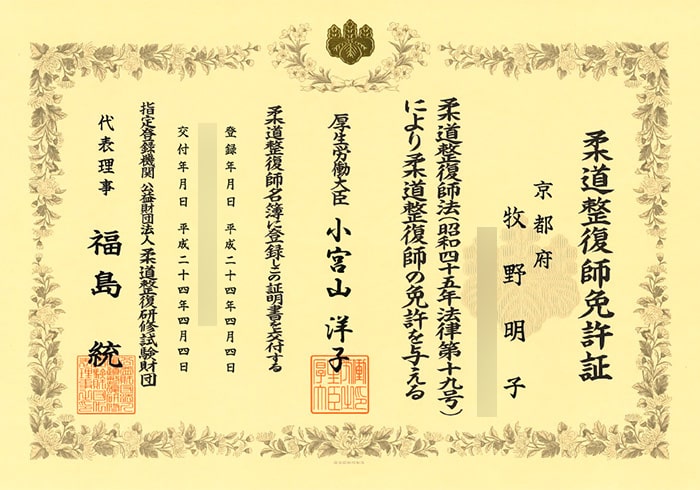 柔道整復師免許証
京都府
牧野明子
柔道整復師法(昭和四十五年法律第十九号)
により柔道整復師の免許を与える
厚生労働大臣 小宮山洋子
柔道整復師名簿に登録しこの証明書を交付する
登録年月日 平成二十四年四月四日
交付年月日 平成二十四年四月四日
指定登録機関 公益財団法人柔道整復研修試験財団
代表理事 福島統